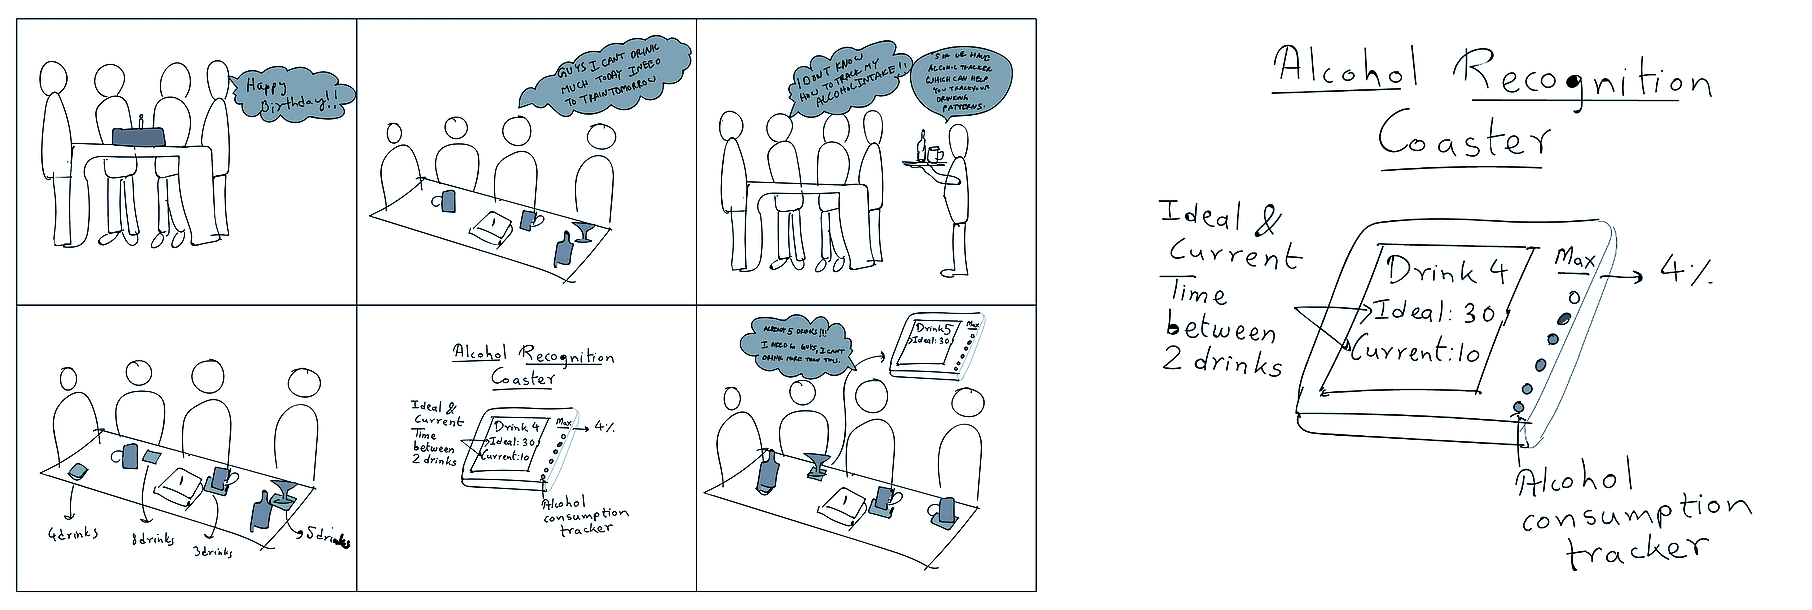 Happy
Birthday!!
GUYS I CANT DRINK
MUCH TODAY I NEED
TO TRAIN TOMORROW
I DONT KNOW
HOW TO TRACK MY
ALCOHOL INTAKE!!
HAVE
ALCOHOL TRACKER
WHICH CAN HELP
YOU TRACK YOUR
DRINKING
PATTERNS.
4 drinks
drinks
3 drinks
5 drinks
Alcohol Recognition
Coaster
Ideal &
Current
Time
between
2 drinks
Drink 4
Ideal: 30
Current: 10
Max
4%
Alcohol
consumption
tracker
ALREADY 5 DRINKS!!!
I NEED GUYS, I CANT
DRINK MORE THAN THIS.
Drink 5
Ideal: 30
Max
Alcohol Recognition
Coaster
Ideal &
Current
Time
between
2 drinks
Drink 4
Ideal: 30
Current: 10
Max
4%.
Alcohol
consumption
tracker